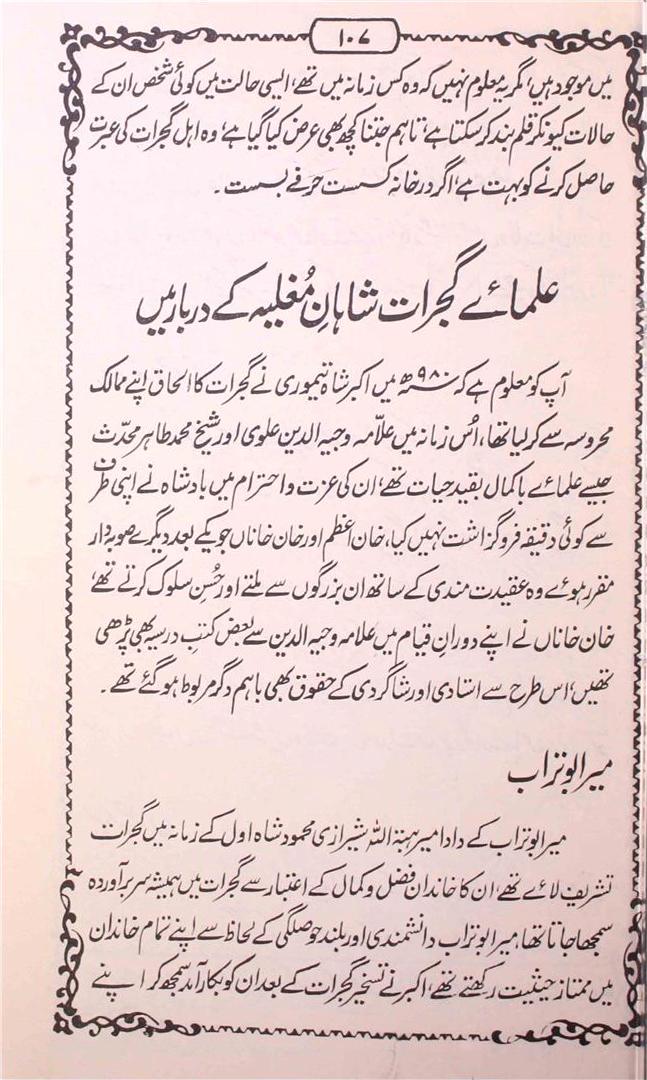 ۱۰۷
میں موجود ہیں، مگر یہ معلوم نہیں کہ وہ کس زمانہ میں تھے، ایسی حالت میں کوئی شخص ان کے
حالات کیونکر قلم بند کر سکتا ہے، تاہم جتنا کچھ بھی عرض کیا گیا ہے، وہ اہل گجرات کی عبرت
حاصل کرنے کو بہت ہے، اگر در خانہ کسست حرفے بست۔
علمائے گجرات شاہانِ مُغلیہ کے دربار میں
آپ کو معلوم ہے کہ ۹۸۰ھ میں اکبر شاہ تیموری نے گجرات کا الحاق اپنے ممالک
محروسہ سے کر لیا تھا، اُس زمانہ میں علّامہ وجیہ الدین علوی اور شیخ محمد طاہر محدّث
جیسے علمائے باکمال بقید حیات تھے، ان کی عزت و احترام میں بادشاہ نے اپنی طرف
سے کوئی دقیقہ فروگزاشت نہیں کیا، خان اعظم اور خان خاناں جو یکے بعد دیگرے صوبہ دار
مقرر ہوئے وہ عقیدت مندی کے ساتھ ان بزرگوں سے ملتے اور حُسنِ سلوک کرتے تھے،
خان خاناں نے اپنے دورانِ قیام میں علامہ وجیہ الدین سے بعض کتب درسیہ بھی پڑھی
تھیں، اس طرح سے استادی اور شاگردی کے حقوق بھی باہم دگر مربوط ہو گئے تھے۔
میر ابو تراب
میر ابو تراب کے دادا میر ہبۃ اللہ شیرازی محمود شاہ اول کے زمانہ میں گجرات
تشریف لائے تھے، ان کا خاندان فضل و کمال کے اعتبار سے گجرات میں ہمیشہ سر برآوردہ
سمجھا جاتا تھا، میر ابو تراب دانشمندی اور بلند حوصلگی کے لحاظ سے اپنے تمام خاندان
میں ممتاز حیثیت رکھتے تھے، اکبر نے تسخیر گجرات کے بعد ان کو بکار آمد سمجھ کر اپنے